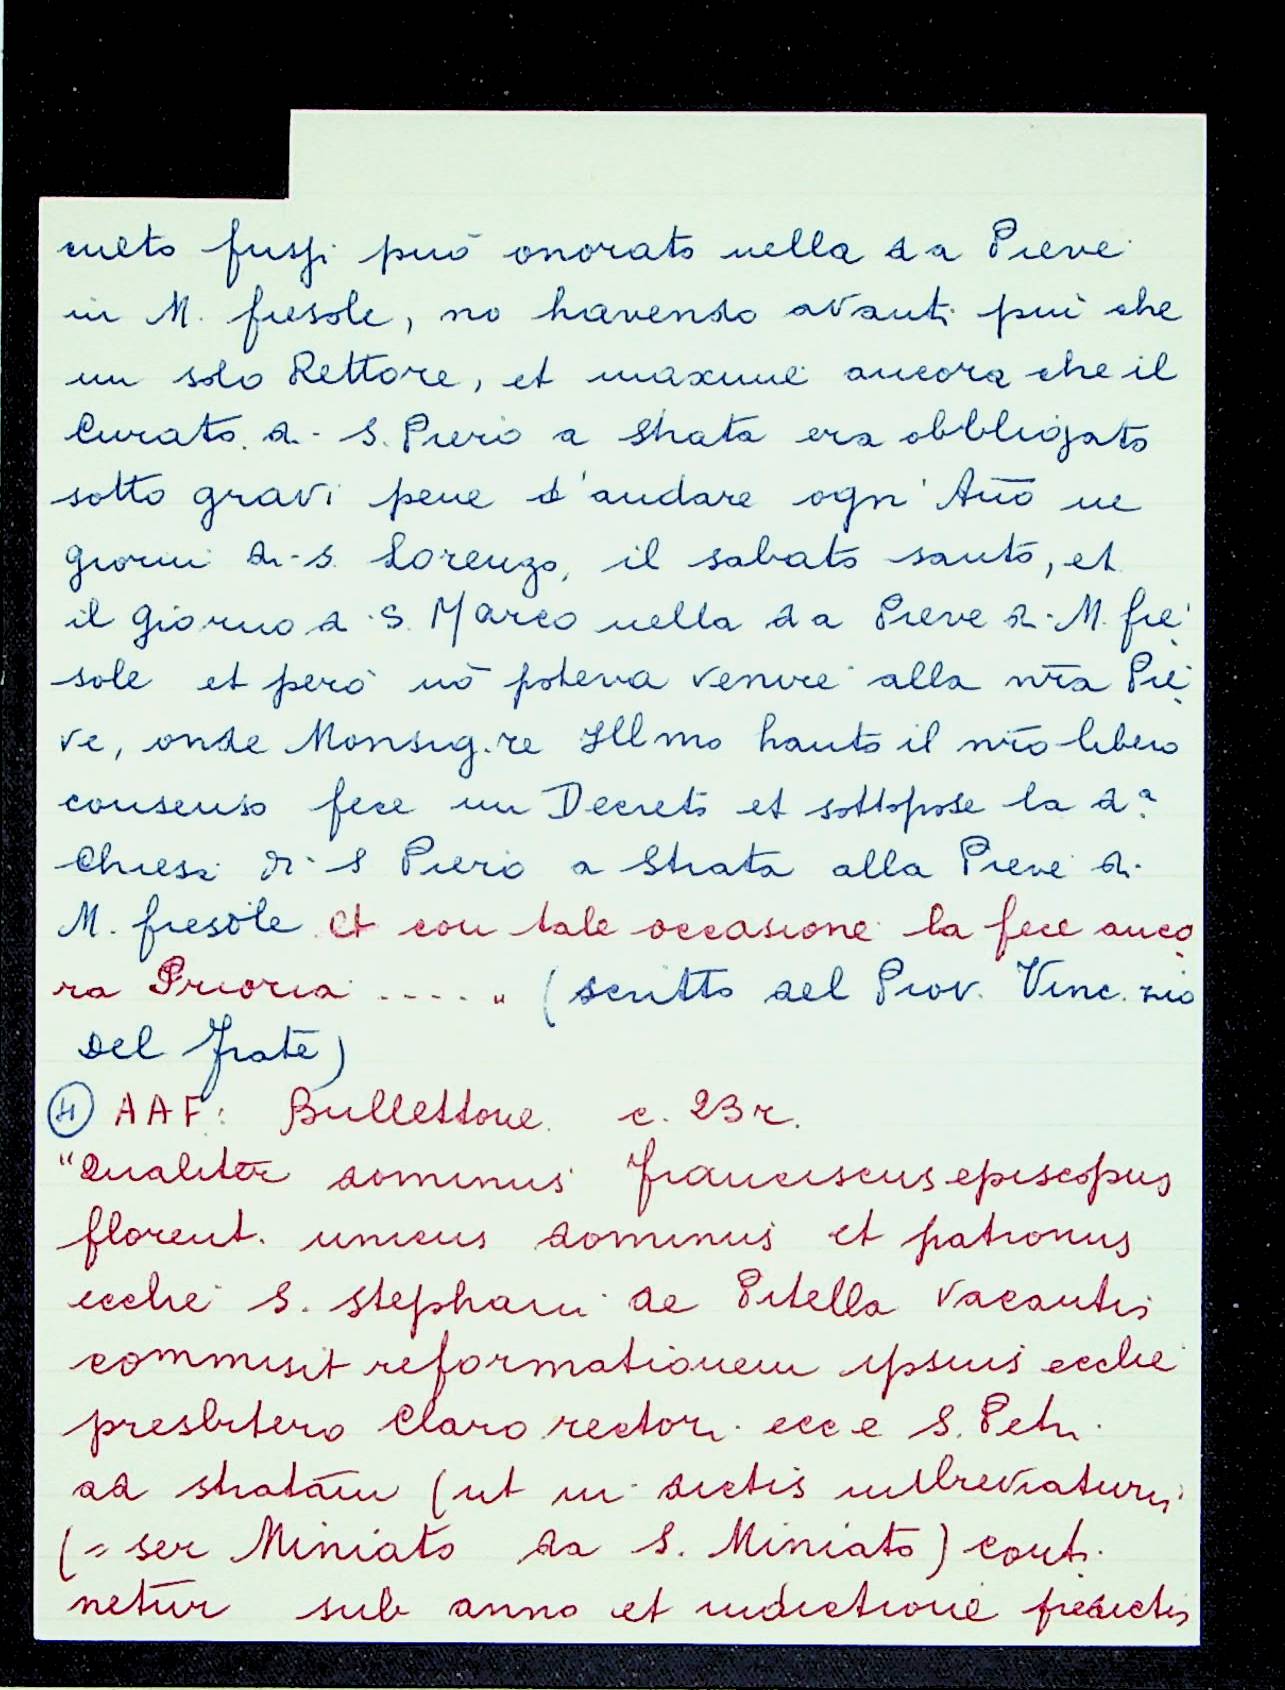 culto fussi più onorato nella da Pieve
in M. fiesole, nō havendo avanti più che
un solo Rettore, et maxime ancora che il
Curato di S. Piero a Strata era obbligato
sotto gravi pene d'andare ogn' Año ne
giorni di S. Lorenzo, il sabato santo, et
il giorno di S. Marco nella da Pieve di M. fie
sole et però nō poteva venire alla nr̄a Pie
ve, onde Monsig.re Illmo hauto il nr̄o libero
consenso fece un Decreto et sottopose la dª
Chiesa di S Piero a Strata alla Pieve di
M. fiesole et con tale occasione la fece anco
ra Prioria ....." (scritto del Piov. Vinc.zio
Del Frate)
④ AAF: Bullettone c. 23r.
"Qualiter dominus Franciscus episcopus
florent. unicus dominus et patronus
ecclie S. Stephani de Pitella vacantis
commisit reformationem ipsius ecclie
presbitero Claro rectori ecc e S. Petri
ad stratam (ut in dictis imbreviaturis
(= ser Miniato da S. Miniato) conti
netur sub anno et indictione predictis